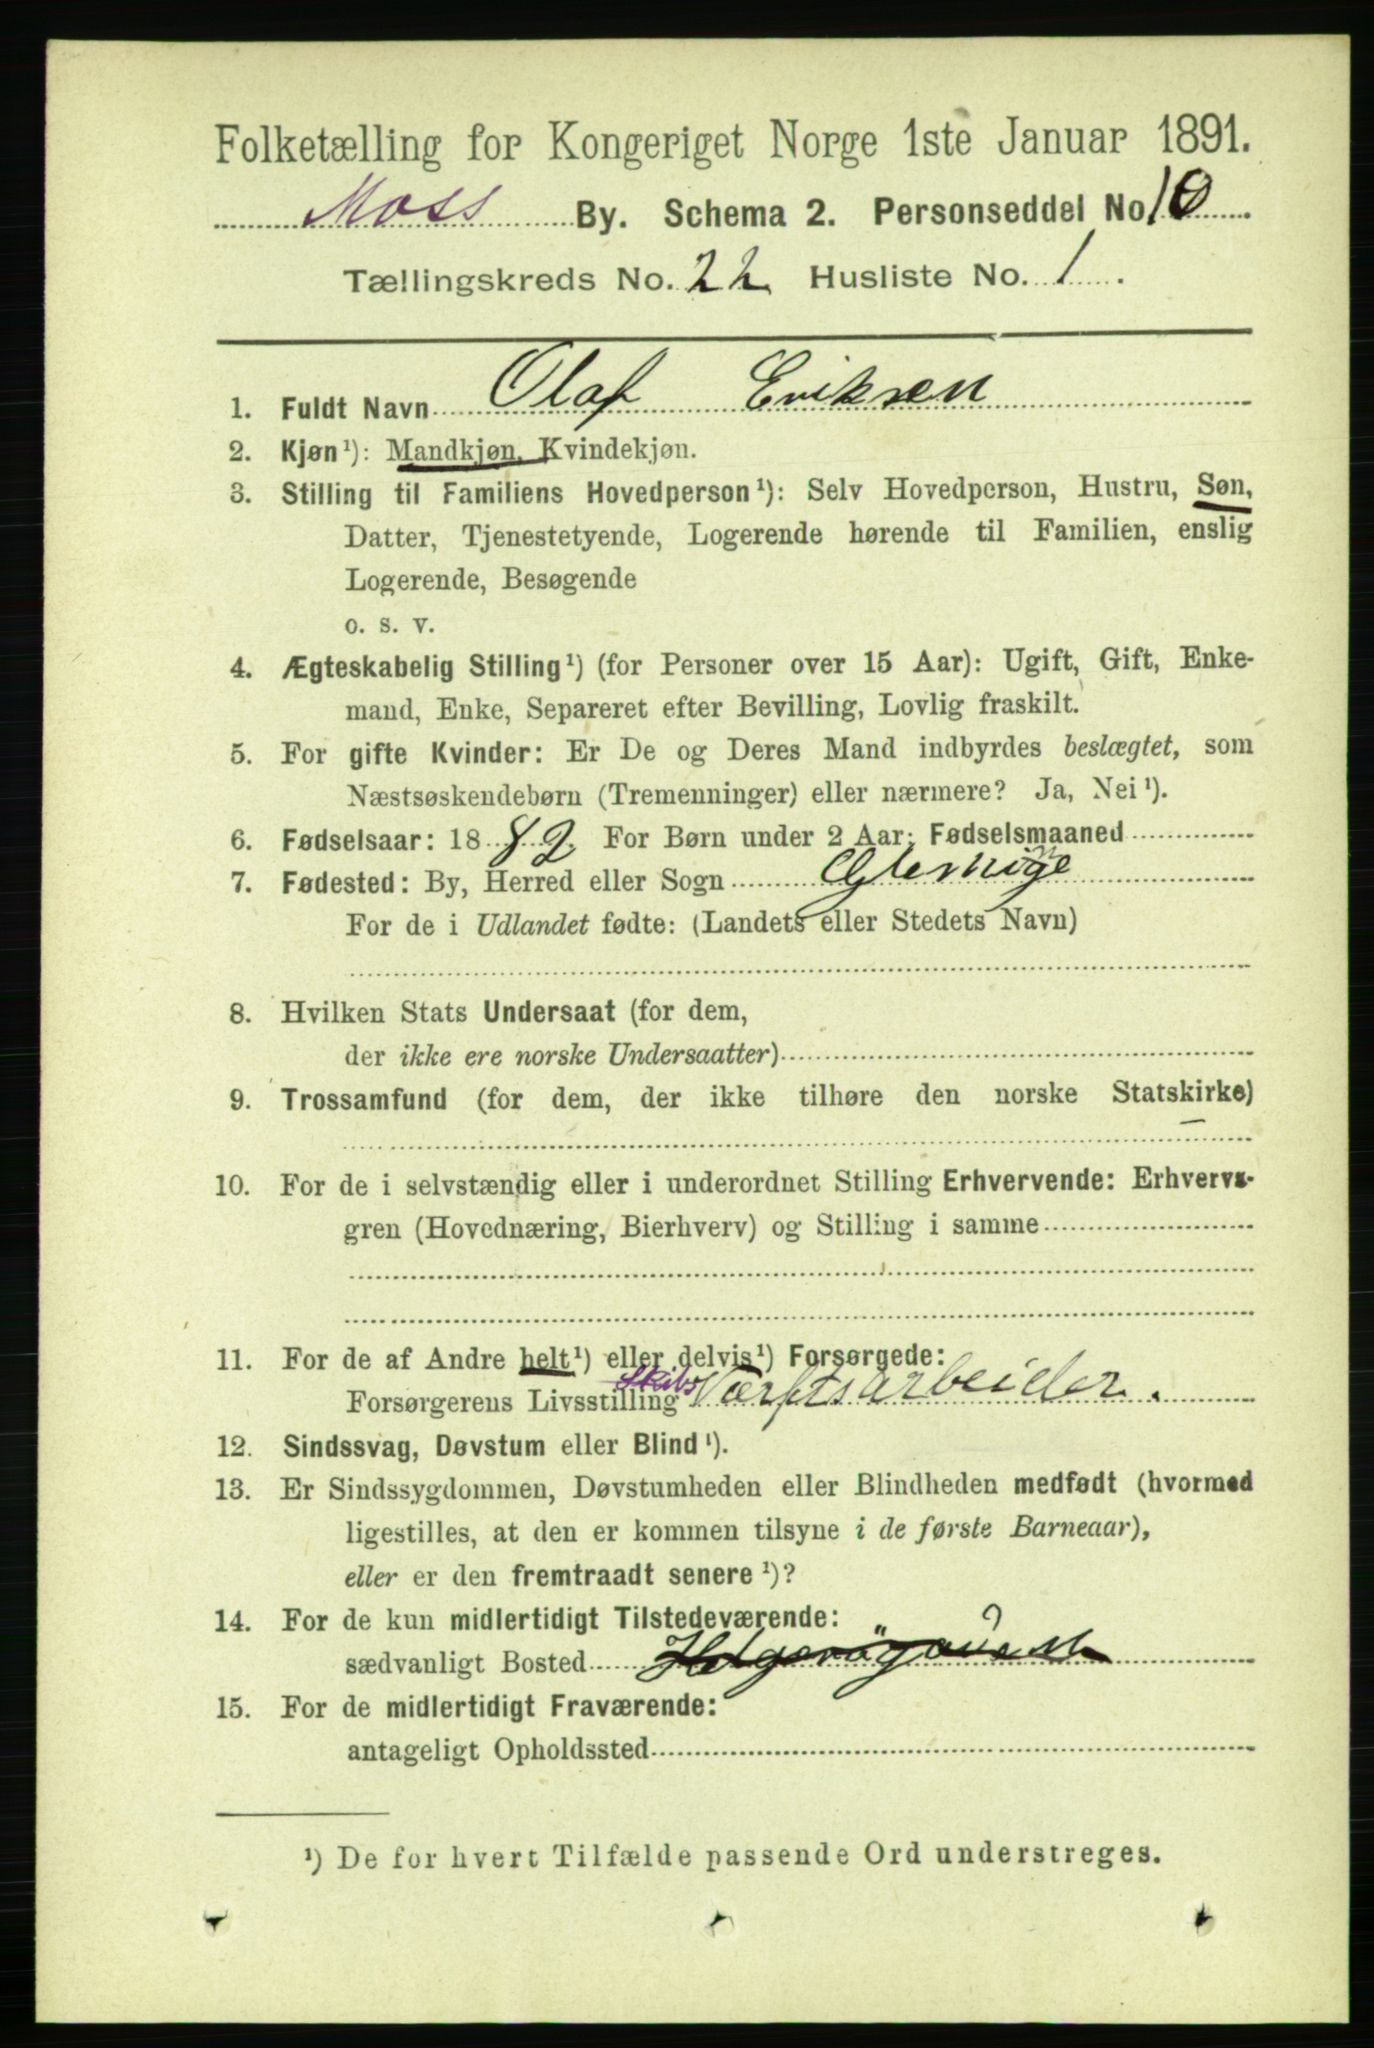 Folketælling for Kongeriget Norge 1ste Januar 1891.
Moss By. Schema 2. Personseddel No 10
Tællingskreds No. 22 Husliste No. 1.
1. Fuldt Navn Olaf Eriksen
2. Kjøn¹): Mandkjøn, Kvindekjøn.
3. Stilling til Familiens Hovedperson¹): Selv Hovedperson, Hustru, Søn,
Datter, Tjenestetyende, Logerende hørende til Familien, enslig
Logerende, Besøgende
o. s. v.
4. Ægteskabelig Stilling¹) (for Personer over 15 Aar): Ugift, Gift, Enke-
mand, Enke, Separeret efter Bevilling, Lovlig fraskilt.
5. For gifte Kvinder: Er De og Deres Mand indbyrdes beslægtet, som
Næstsøskendebørn (Tremenninger) eller nærmere? Ja, Nei¹).
6. Fødselsaar: 1882. For Børn under 2 Aar: Fødselsmaaned
7. Fødested: By, Herred eller Sogn
For de i Udlandet fødte: (Landets eller Stedets Navn)
8. Hvilken Stats Undersaat (for dem,
der ikke ere norske Undersaatter)
9. Trossamfund (for dem, der ikke tilhøre den norske Statskirke)
10. For de i selvstændig eller i underordnet Stilling Erhvervende: Erhvervs-
gren (Hovednæring, Bierhverv) og Stilling i samme
11. For de af Andre helt¹) eller delvis¹) Forsørgede:
Forsørgerens Livsstilling Skibs Værftsarbeider.
12. Sindssvag, Døvstum eller Blind¹).
13. Er Sindssygdommen, Døvstumheden eller Blindheden medfødt (hvormed
ligestilles, at den er kommen tilsyne i de første Barneaar),
eller er den fremtraadt senere¹)?
14. For de kun midlertidigt Tilstedeværende:
sædvanligt Bosted
15. For de midlertidigt Fraværende:
antageligt Opholdssted
¹) De for hvert Tilfælde passende Ord understreges.